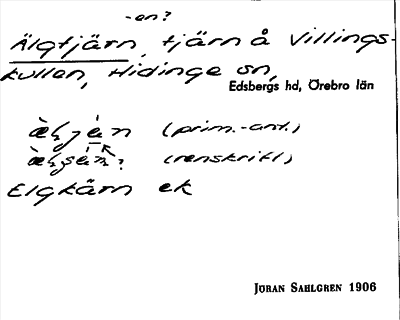 -en?
Älgtjärn, tjärn å Villings-
kullen, Hidinge sn,
Edsbergs hd, Örebro län
(prim.-ant.)
(renskrift)
Elgkärn ek
JÖRAN SAHLGREN 1906